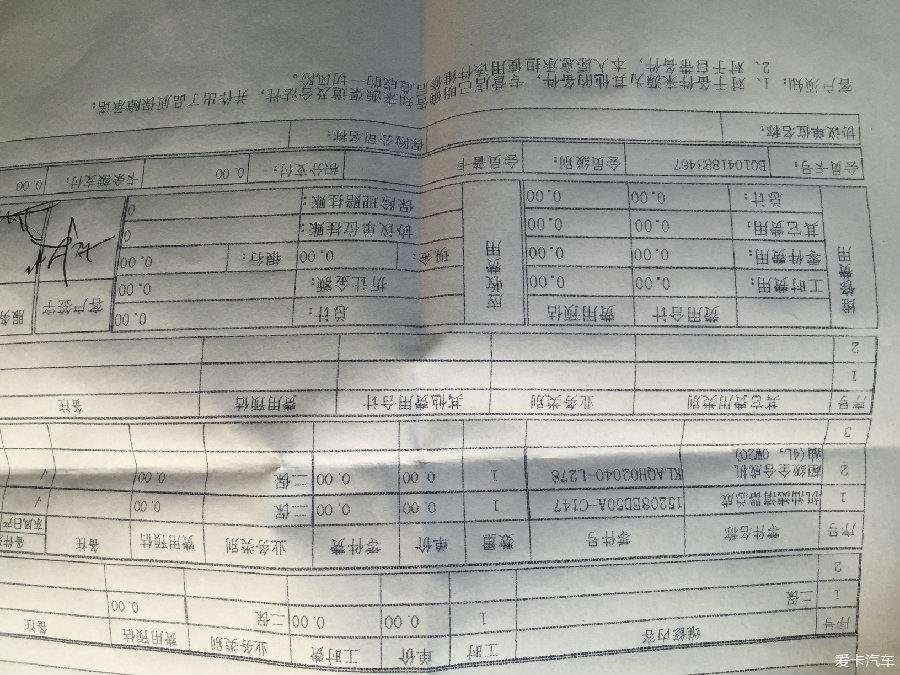 序号 维修内容 工时 单价 工时费 业务类别 费用预估 备注
1 二保 1 0.00 0.00 二保 0.00
2
序号 零件名称 零件号 数量 单价 零件费 业务类别 费用预估 备注 东风日产
1 机油滤清器总成 15208ED50A-C147 1 0.00 0.00 二保 0.00 √
2 超级全合成机 KLAQH02040-L278 1 0.00 0.00 二保 0.00 √
油(4L, 0W20)
3
序号 其它费用类别 业务类别 其他费用合计 费用预估 备注
1
2
维修费用 费用合计 费用预估 应收费用 总计: 0.00 客户签字 服务
工时费用: 0.00 0.00 折让金额: 0.00
零件费用: 0.00 0.00 现金: 0.00 银行: 0.00
其它费用: 0.00 0.00 协议单位挂账: 0
总计: 0.00 0.00 保险理赔挂账: 0
会员卡号 B01041883467 会员级别: 会员普卡 积分支付: 0.00 卡余额支付: 0.00
协议单位名称: 保险公司名称:
客户须知: 1、对于备件来源为其他的备件, 专营店已明确告知来源渠道及合法性, 并作出了品质保障承诺;
2、对于自带备件, 本人愿意承担使用该备件维修后造成的一切风险。
爱卡汽车